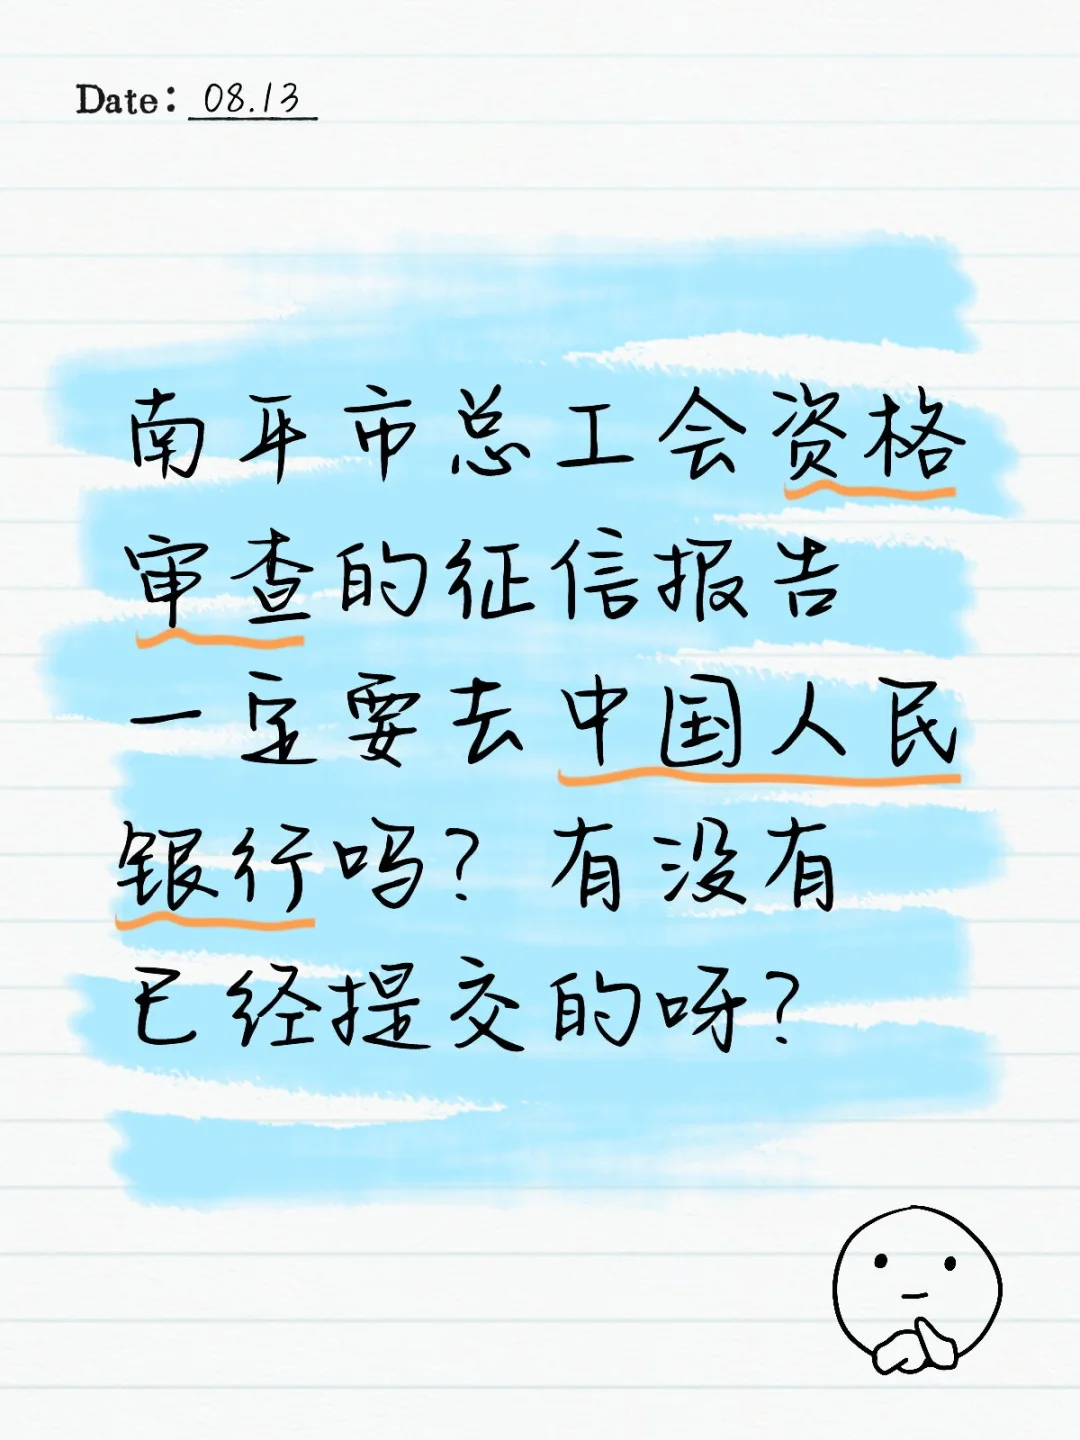 Date: 08.13
南平市总工会资格
审查的征信报告
一定要去中国人民
银行吗？有没有
已经提交的呀？